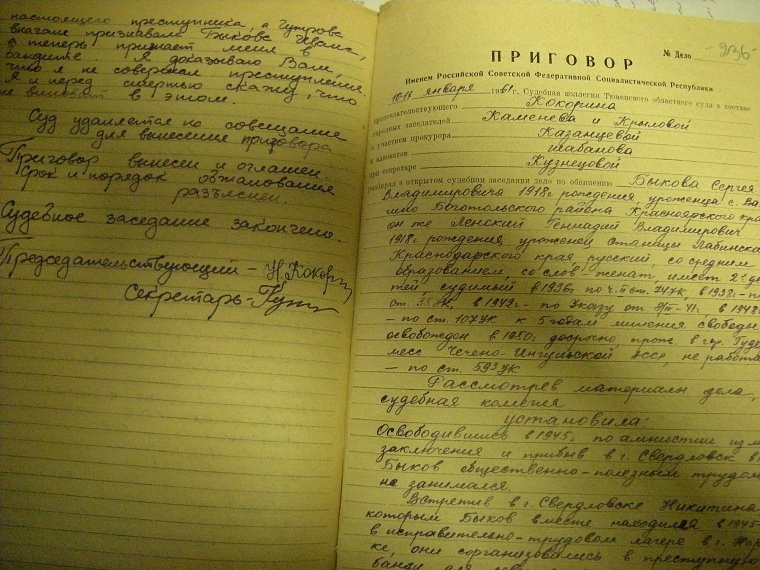 настоящего преступника, а Чупрова
вначале признавала Быкова Ивана,
а теперь признает меня в
бандите. Я доказываю Вам,
что я не совершал преступления.
Я и перед смертью скажу, что
не виноват в этом.
Суд удаляется на совещание
для вынесения приговора
Приговор вынесен и оглашен.
Срок и порядок обжалования
разъяснен.
Судебное заседание закончено.
Председательствующий – Н. Кокорин
Секретарь –
№ Дело 236-
ПРИГОВОР
Именем Российской Советской Федеративной Социалистической Республики
января 1961 г. Судебная коллегия Тюменского областного суда в составе
председательствующего Кокорина
народных заседателей Каменева и Крыловой
с участием прокурора Казанцевой
и адвокатов Шабанова
при секретаре Кузнецовой
разобрал в открытом судебном заседании дело по обвинению Быкова Сергея
Владимировича 1918 г. рождения уроженца с. Ва
гино Боготольского района Красноярского края
он же Ленский Геннадий Владимирович
1918 г. рождения, уроженец станицы Лабинска
Краснодарского края, русский, со средним
образованием, со слов женат, имеет 2х де
тей судимый в 1936 г. по ст. 74 УК, в 1938 г. – по
ст. 35 УК, в 1942 г. – по Указу от в 1948
– по ст. 107 УК к 5 годам лишения свободы
освобожден в 1950 г. досрочно, прож. в гор. Гуде
рмес Чечено-Ингушской АССР, не работа
– по ст. 59³ УК
Рассмотрев материалы дела,
судебная коллегия
установила:
Освободившись в 1945 г. по амнистии из м
заключения и прибыв в г. Свердловск
Быков общественно-полезным трудом
не занимался.
Встретив в г. Свердловске Никитина
которым Быков вместе находился в 1945
в исправительно-трудовом лагере в г. 
ке, они сорганизовались в преступную
банду для